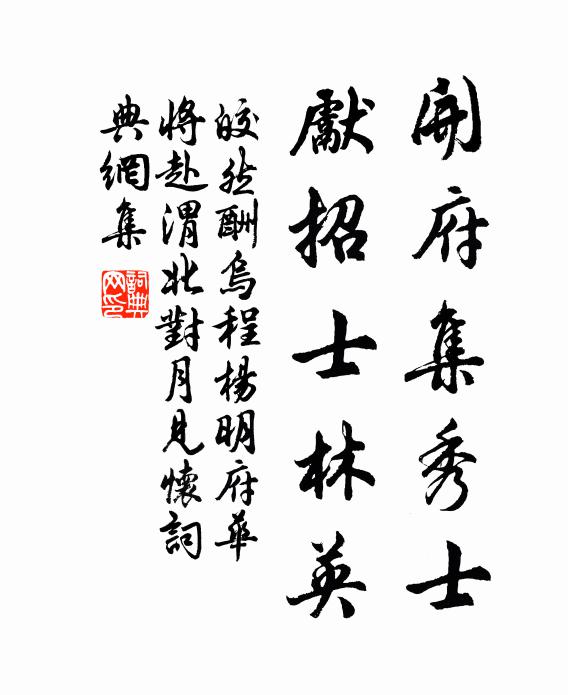 開府集秀士
獻招士林英
皎然酬烏程楊明府華
將赴渭北對月見懷詞
典網集
詞典
网印